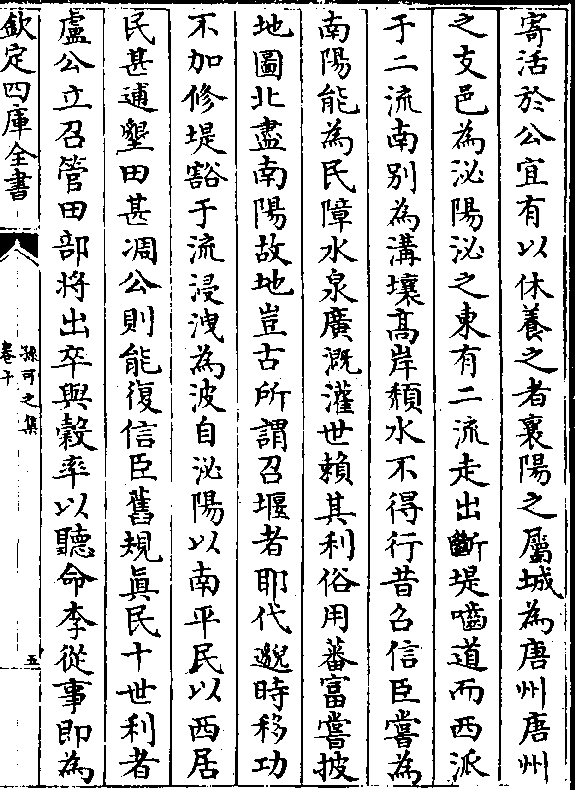 寄活於公宜有以休養之者襄陽之屬城為唐州唐州
之支邑為泌陽泌之東有二流走出斷堤嚙道而西派
于二流南別為溝壤高岸頽水不得行昔召信臣嘗為
南陽能為民障水泉廣溉灌世賴其利俗用蕃富嘗披
地圖北盡南陽故地豈古所謂召堰者耶代邈時移功
不加修堤豁于流浸洩為波自泌陽以南平民以西居
民甚逋墾田甚凋公則能復信臣舊規真民十世利者
盧公立召管田部將出卒與糓率以聽命李從事即為
欽定四庫全書
孫可之集
卷十
五